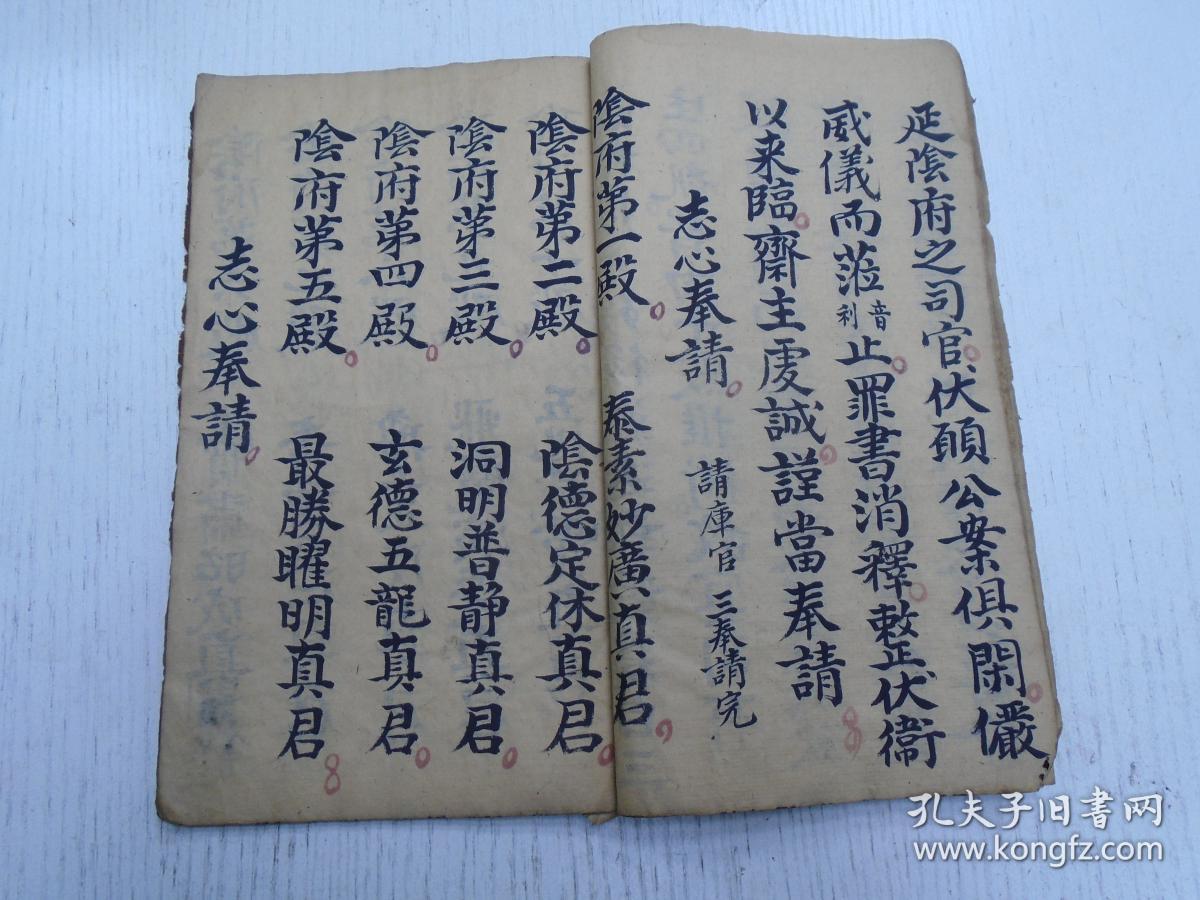 疋陰府之司官伏願公案俱閑儼
威儀而蒞音利止罪書消釋敕正伏衞
以来臨齋主虔誠謹當奉請
志心奉請 請庫官 三奉請完
陰府第一殿 泰素妙廣真君
陰府第二殿 陰德定休真君
陰府第三殿 洞明普静真君
陰府第四殿 玄德五龍真君
陰府第五殿 最勝曜明真君
志心奉請
孔夫子旧书网
www.kongfz.com